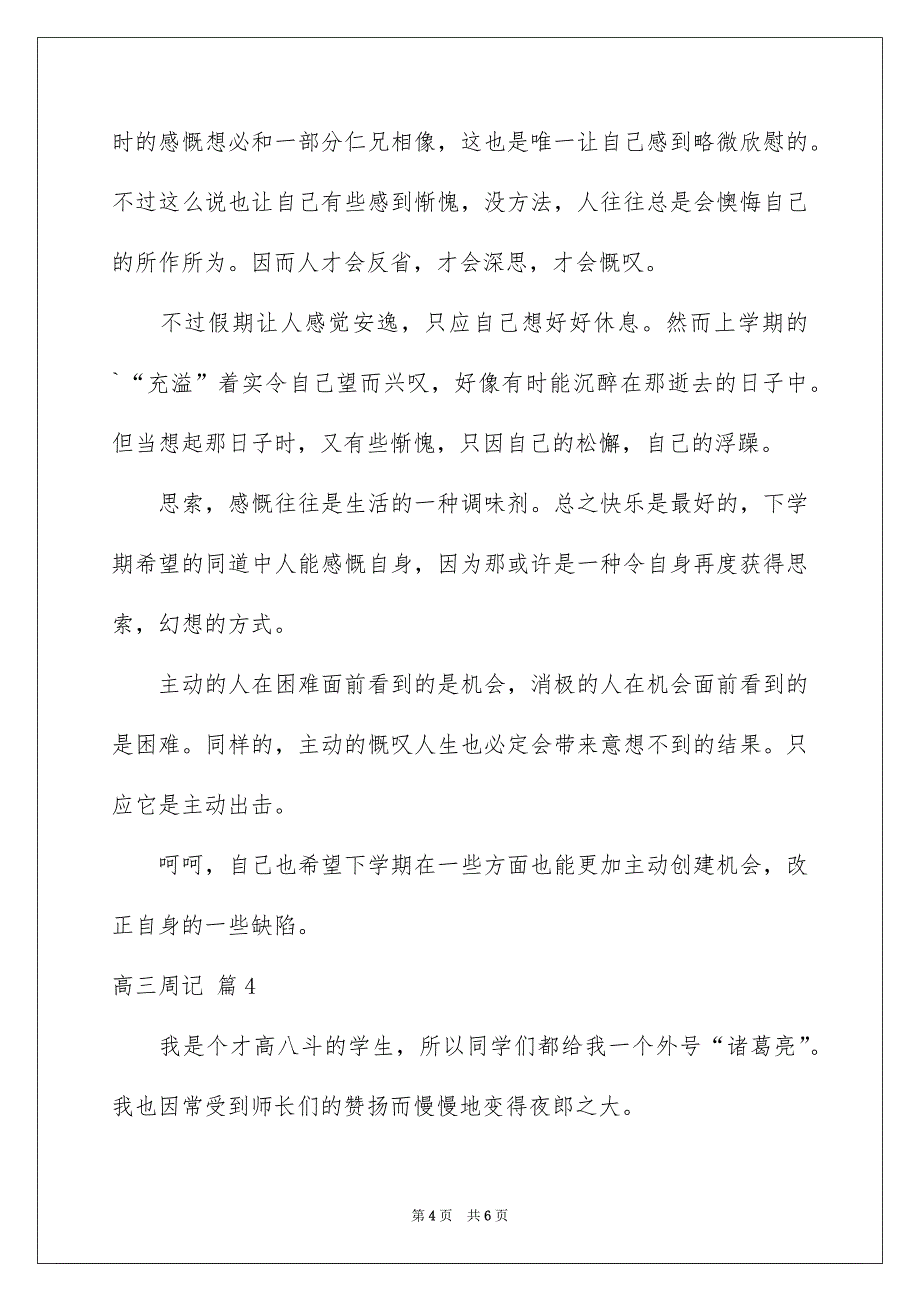 时的感慨想必和一部分仁兄相像，这也是唯一让自己感到略微欣慰的。
不过这么说也让自己有些感到惭愧，没方法，人往往总是会懊悔自己
的所作所为。因而人才会反省，才会深思，才会慨叹。
不过假期让人感觉安逸，只应自己想好好休息。然而上学期的
`“充溢”着实令自己望而兴叹，好像有时能沉醉在那逝去的日子中。
但当想起那日子时，又有些惭愧，只因自己的松懈，自己的浮躁。
思索，感慨往往是生活的一种调味剂。总之快乐是最好的，下学
期希望的同道中人能感慨自身，因为那或许是一种令自身再度获得思
索，幻想的方式。
主动的人在困难面前看到的是机会，消极的人在机会面前看到的
是困难。同样的，主动的慨叹人生也必定会带来意想不到的结果。只
应它是主动出击。
呵呵，自己也希望下学期在一些方面也能更加主动创建机会，改
正自身的一些缺陷。
高三周记 篇4
我是个才高八斗的学生，所以同学们都给我一个外号“诸葛亮”。
我也因常受到师长们的赞扬而慢慢地变得夜郎之大。
第4页 共6页